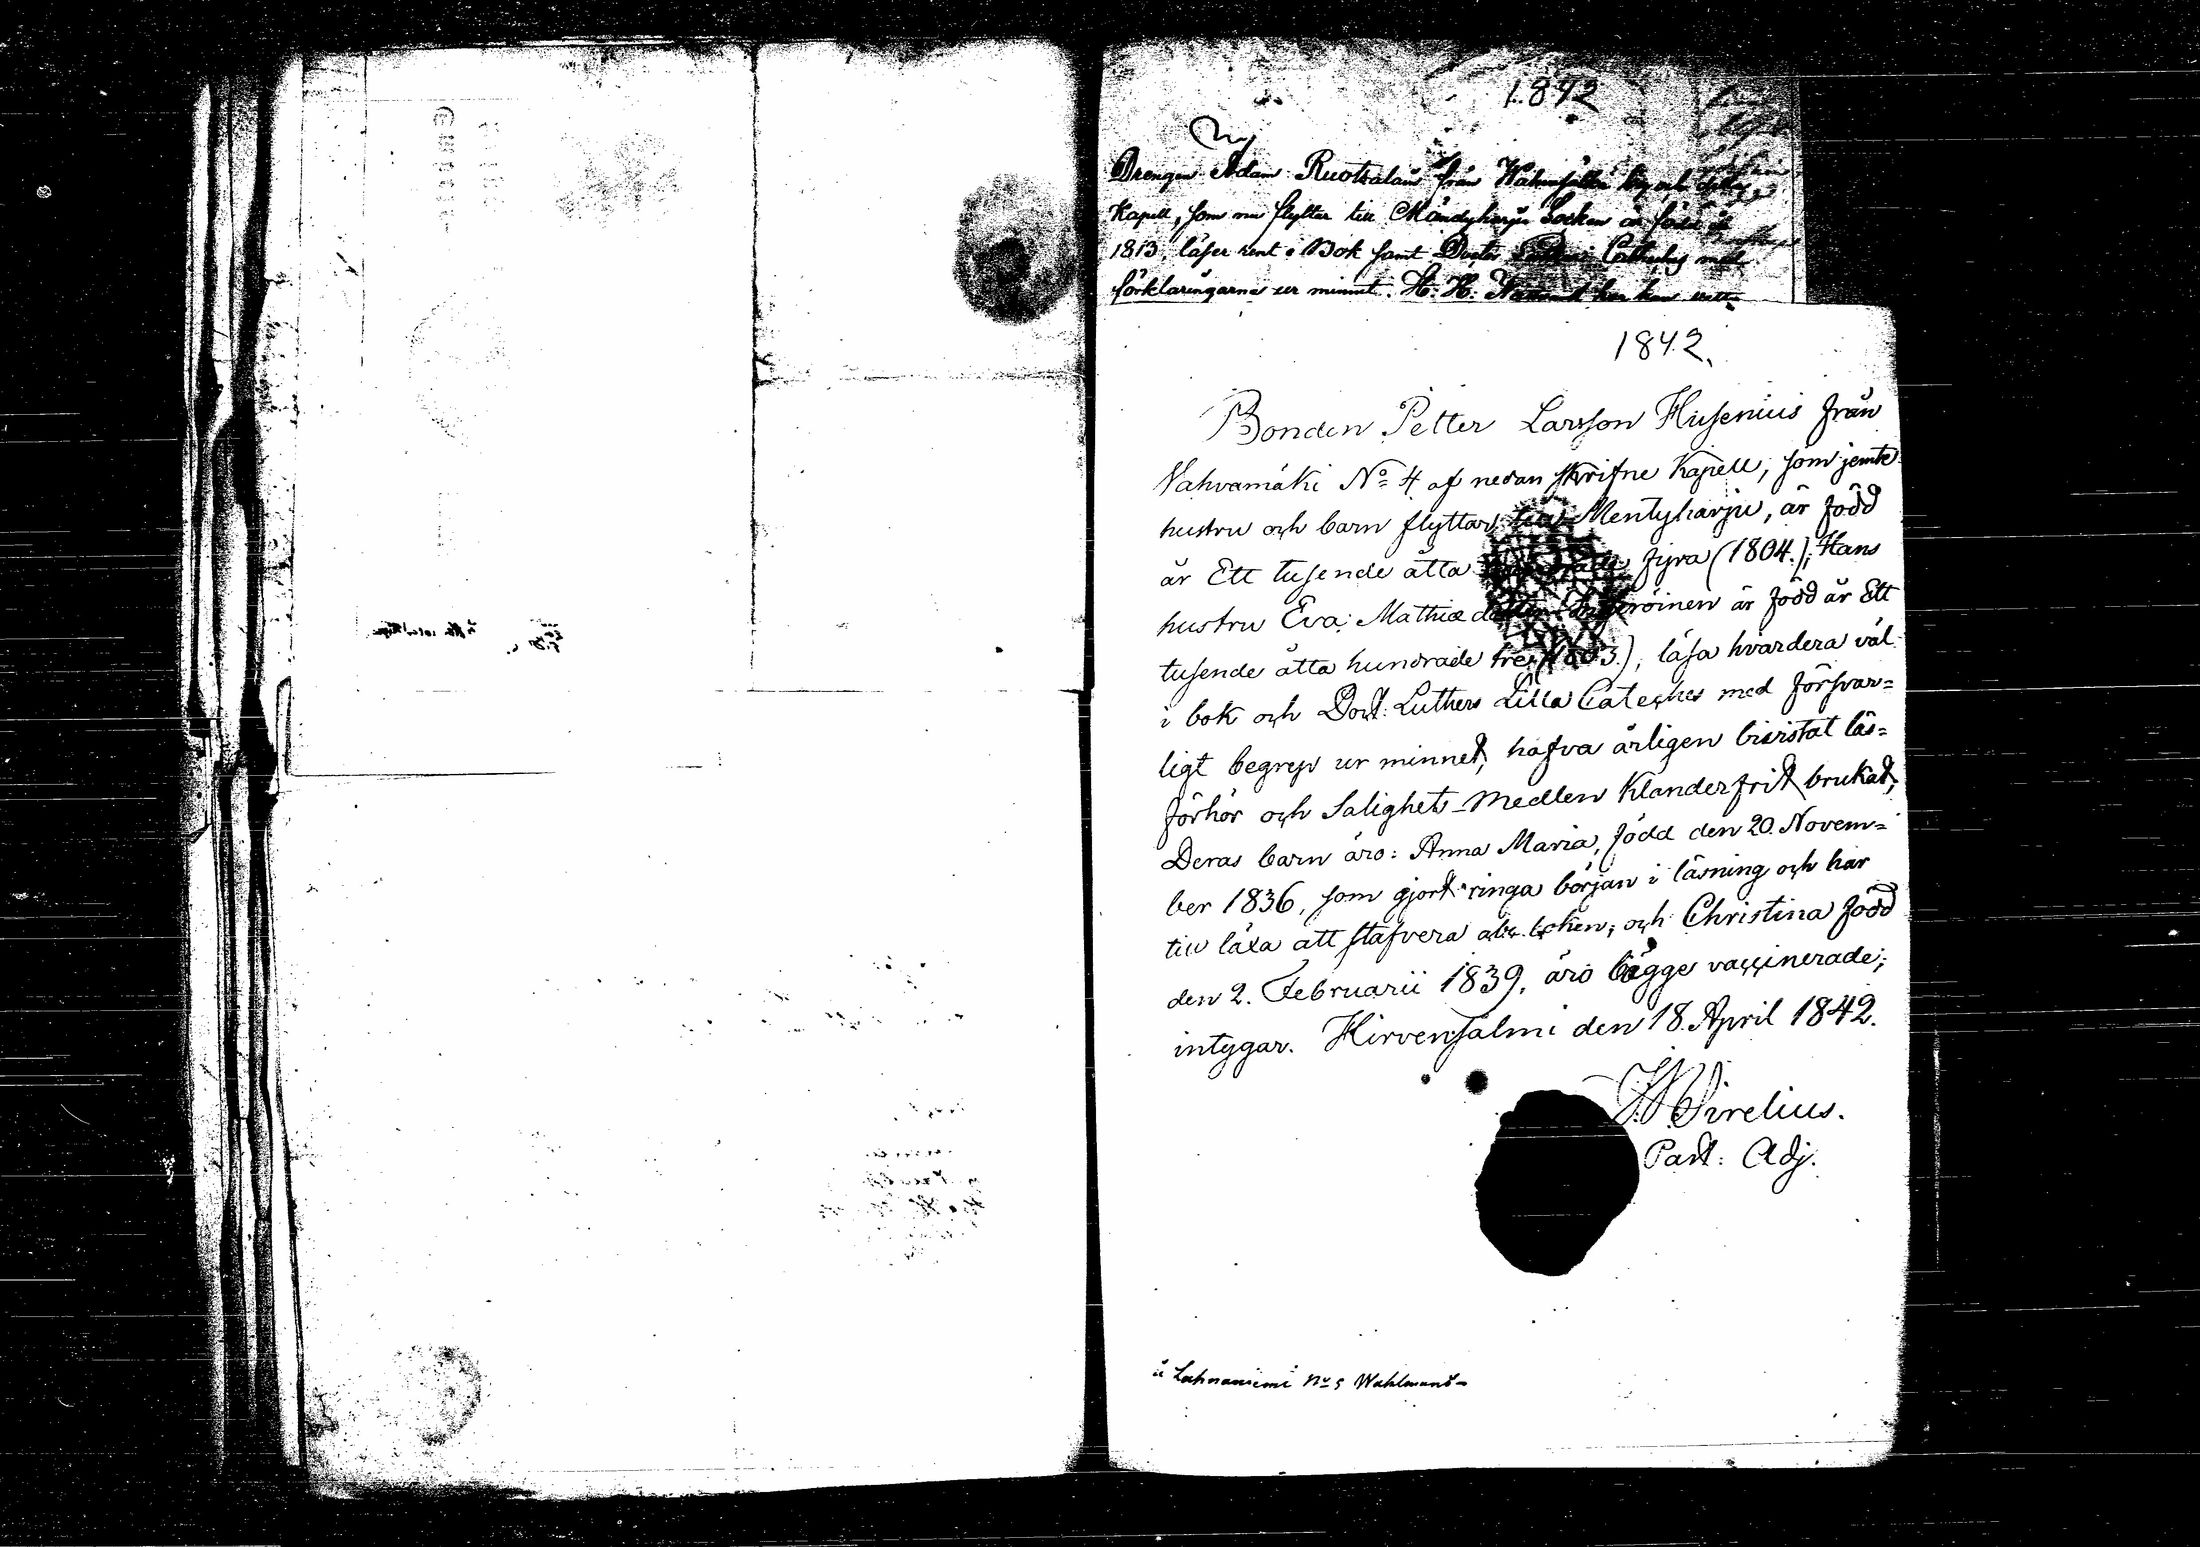 1842
Drengen Adam Ruotsalain från
Kapell, som nu flyttar till Mändyharju Socken är född år
1813, läser rent i Bok samt Doctor Cathches med
förklaringarna ur minnet. H. H. Nattvard har han
1842.
Bonden Petter Larsson Husenius från
Vahvamäki No 4 af nedan skrifne Kapell, som jemte
hustru och barn flyttar till Mentyharju, är född
år Ett tusende åtta hundrade fyra (1804.); Hans
hustru Eva Mathiæ dotter är född år Ett
tusende åtta hundrade tre (1803.), läsa hvardera väl
i bok och Doct: Luthers Lilla Cateches med försvar=
ligt begrep ur minnet, hafva årligen bivistat läs=
förhör och Salighets-Medlen Klanderfritt brukat;
Deras barn äro: Anna Maria, född den 20. Novem=
ber 1836, som gjort ringa början i läsning och har
till läxa att stafvera abc boken; och Christina född
den 2. Februarii 1839, äro bägge vaccinerade;
intygar. Hirvensalmi den 18. April 1842.
Sirelius.
Past: Adj.
å Lahnaniemi No 5 Wahlmans